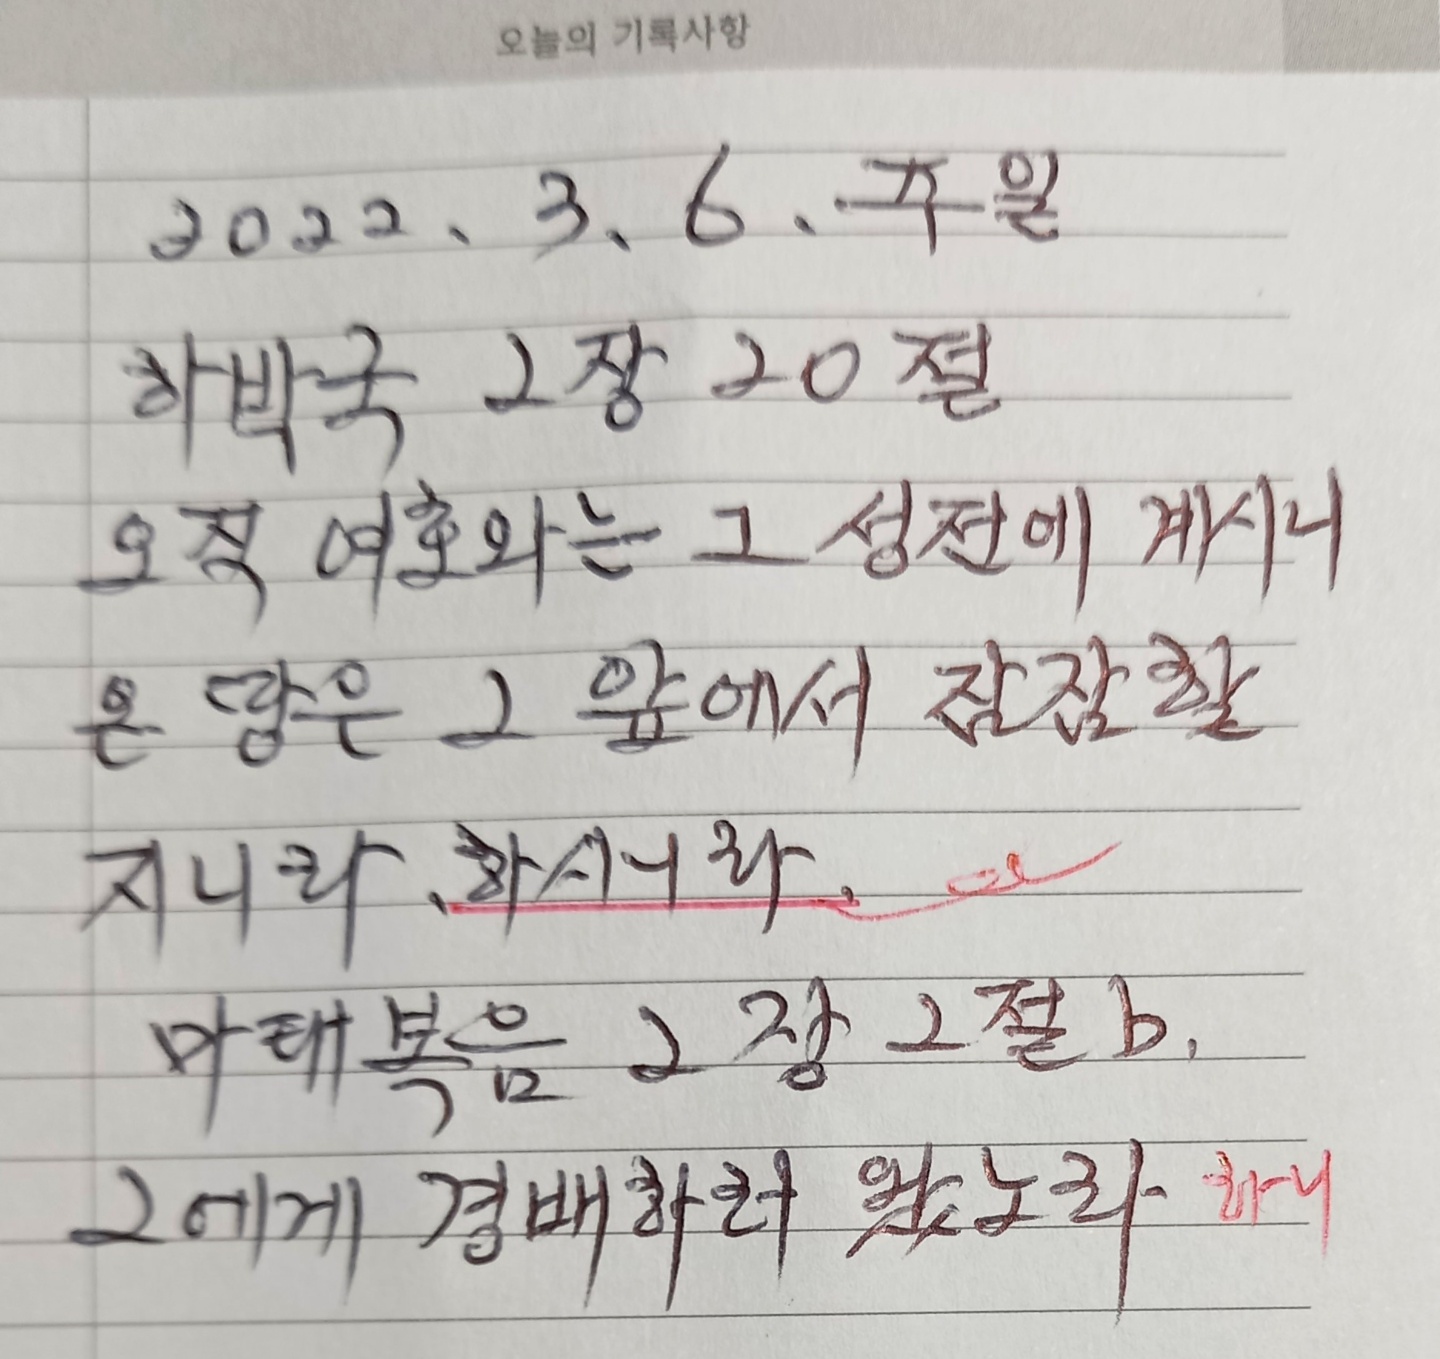 오늘의 기록사항
2022. 3. 6. 주일
하박국 2장 20절
오직 여호와는 그 성전에 계시니
온 땅은 그 앞에서 잠잠할
지니라. 하시니라.
마태복음 2장 2절 b.
그에게 경배하러 왔노라 하니